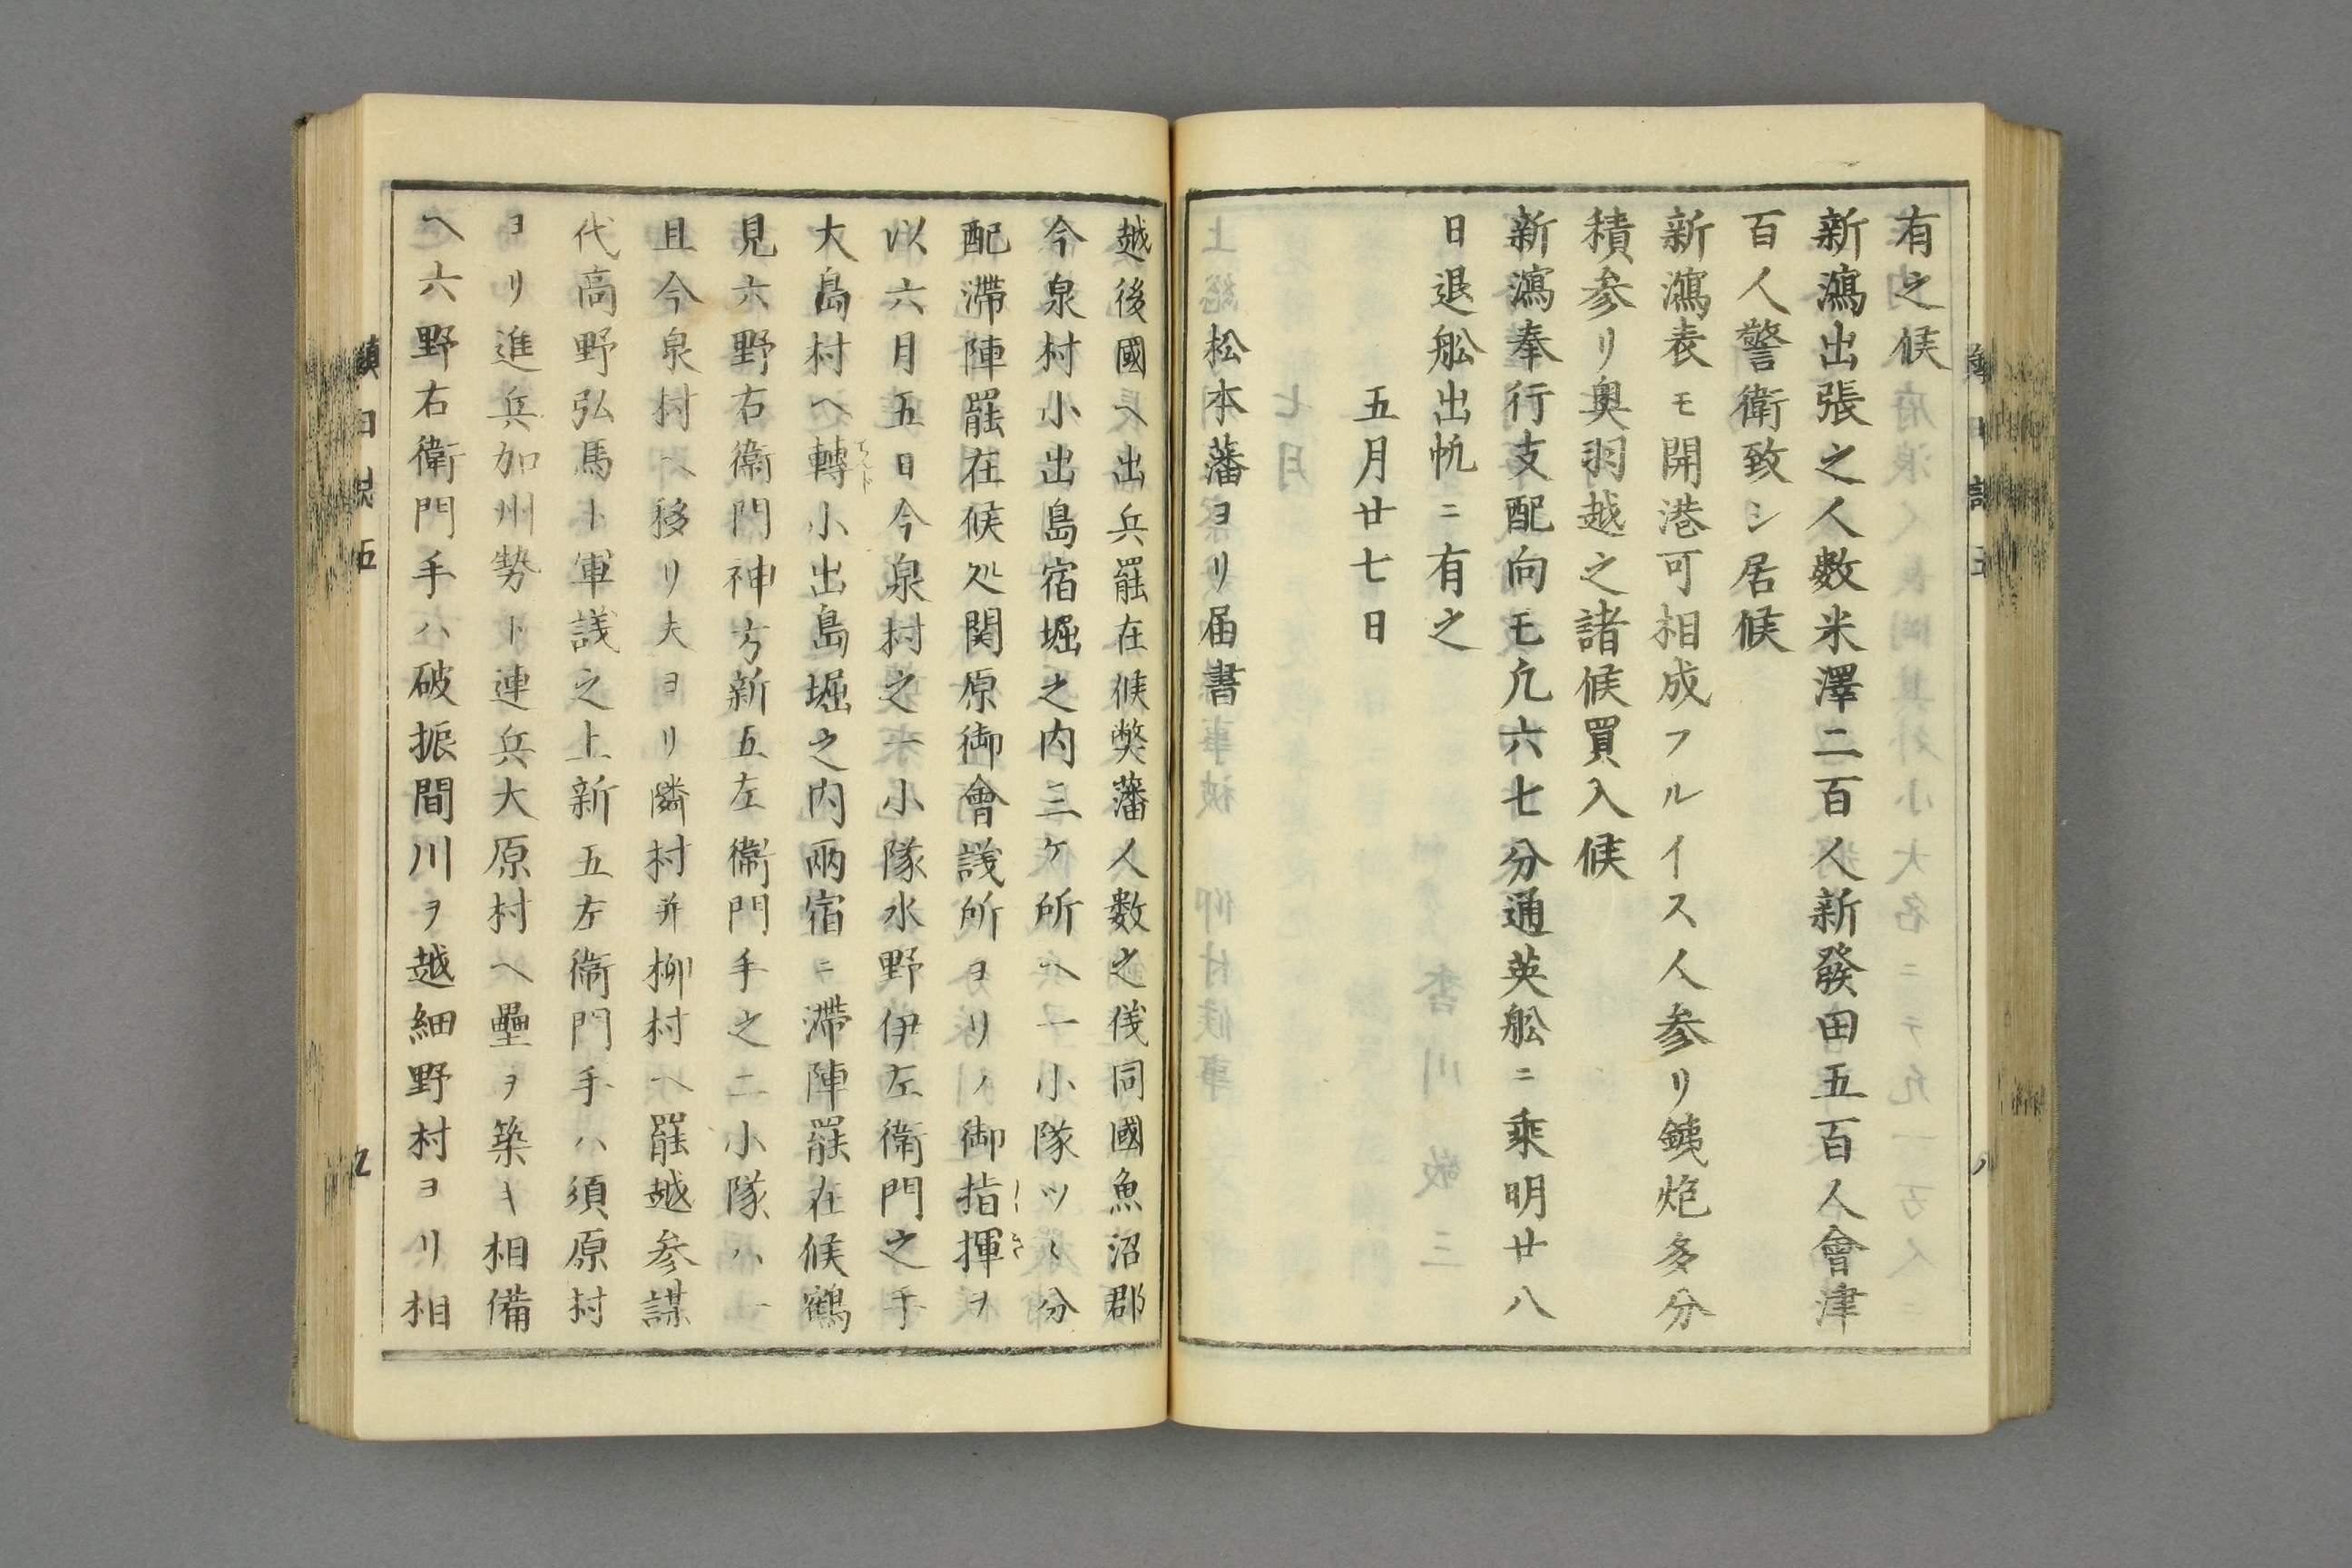 有之候
新瀉出張之人數米澤二百人新發田五百人會津
百人警衛致シ居候
新瀉表モ開港可相成フルイス人参リ銕炮多分
積参リ奥羽越之諸候買入候
新瀉奉行支配向モ凢六七分通英舩ニ乘明廿八
日退舩出帆ニ有之
五月廿七日
松本藩ヨリ届書
越後國ヘ出兵罷在候弊藩人數之儀同國魚沼郡
今泉村小出島宿堀之内三ケ所ヘ一小隊ツヽ分
配滯陣罷在候処関原御會議所ヨリノ御指揮ヲ
以六月五日今泉村之一小隊水野伊左衛門之手
大島村ヘ轉小出島堀之内兩宿ニ滯陣罷在候鶴
見六野右衞門神方新五左衞門手之二小隊ハ一
且今泉村ヘ移リ夫ヨリ隣村并柳村ヘ罷越参謀
代高野弘馬ト軍議之上新五左衞門手ハ須原村
ヨリ進兵加州勢ト連兵大原村ヘ壘ヲ築キ相備
ヘ六野右衛門手ハ破振間川ヲ越細野村ヨリ相